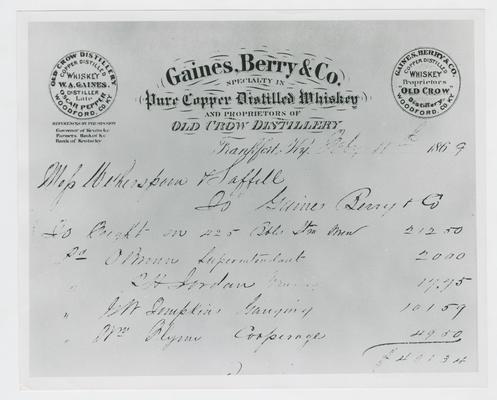 OLD CROW DISTILLERY
COPPER DISTILLED
WHISKEY
W. A. GAINES,
DISTILLER
Late
OSCAR PEPPER
WOODFORD, CO. KY.
REFERENCES BY PERMISSION
Governor of Kentucky
Farmers Bank of Ky
Bank of Kentucky
Gaines, Berry & Co.
SPECIALTY IN
Pure Copper Distilled Whiskey
AND PROPRIETORS OF
OLD CROW DISTILLERY
GAINES, BERRY & CO.
COPPER DISTILLED
WHISKEY
Proprietors
"OLD CROW"
Distillery
WOODFORD, CO. KY.
Frankfort, Ky. 1869
Mess Witherspoon & Saffell
To Gaines Berry & Co
To Freight on 425 Bbls 212 50
Pd Superintendent 20 00
" R H Jordan 17.75
" Tompkins Gauging 101 59
" Wm Cooperage 49.50
$ 401 34